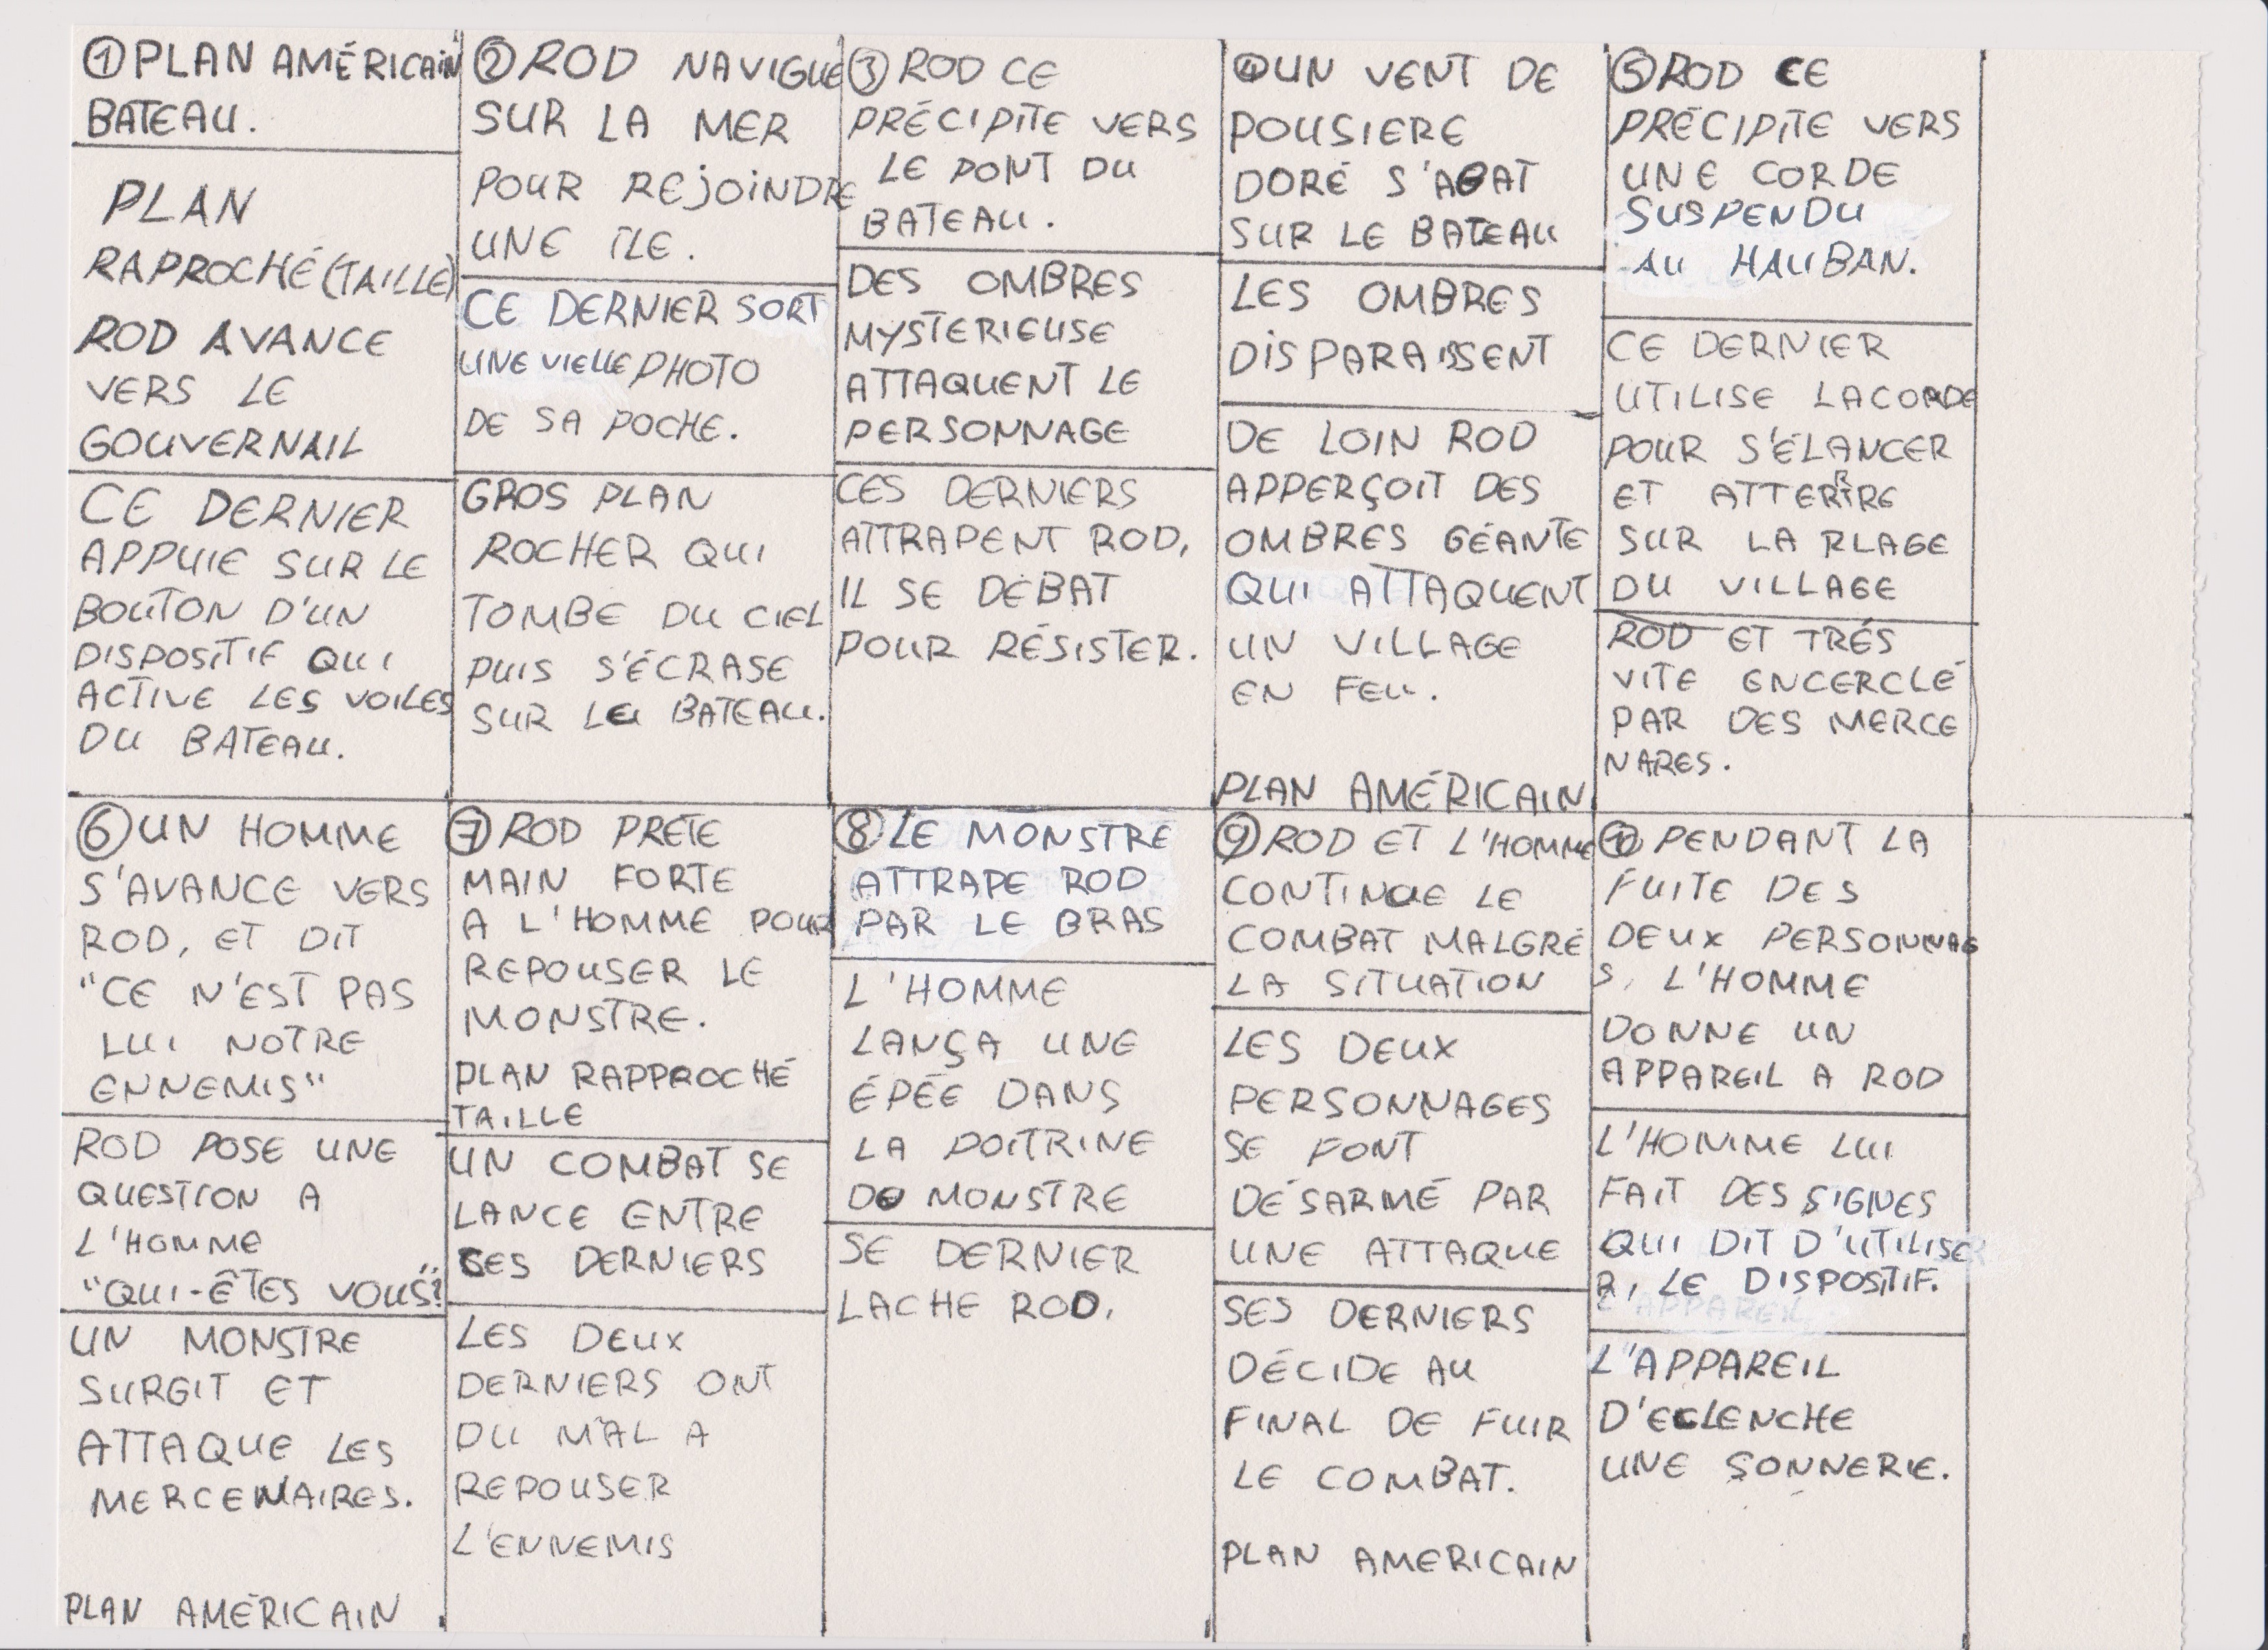 ① PLAN AMÉRICAIN
BATEAU.
PLAN
RAPROCHÉ (TAILLE)
ROD AVANCE
VERS LE
GOUVERNAIL
CE DERNIER
APPUIE SUR LE
BOUTON D'UN
DISPOSITIF QUI
ACTIVE LES VOILES
DU BATEAU.
② ROD NAVIGUE
SUR LA MER
POUR REJOINDRE
UNE ILE.
CE DERNIER SORT
UNE VIELLE PHOTO
DE SA POCHE.
GROS PLAN
ROCHER QUI
TOMBE DU CIEL
PUIS S'ÉCRASE
SUR LE BATEAU.
③ ROD CE
PRÉCIPITE VERS
LE PONT DU
BATEAU.
DES OMBRES
MYSTERIEUSE
ATTAQUENT LE
PERSONNAGE
CES DERNIERS
ATTRAPENT ROD,
IL SE DÉBAT
POUR RÉSISTER.
④ UN VENT DE
POUSIERE
DORÉ S'ABAT
SUR LE BATEAU
LES OMBRES
DISPARAISSENT
DE LOIN ROD
APPERÇOIT DES
OMBRES GÉANTE
QUI ATTAQUENT
UN VILLAGE
EN FEU.
PLAN AMÉRICAIN
⑤ ROD CE
PRÉCIPITE VERS
UNE CORDE
SUSPENDU
AU HAUBAN.
CE DERNIER
UTILISE LA CORDE
POUR S'ÉLANCER
ET ATTERRIRE
SUR LA PLAGE
DU VILLAGE
ROD ET TRÉS
VITE ENCERCLÉ
PAR DES MERCE
NARES.
⑥ UN HOMME
S'AVANCE VERS
ROD, ET DIT
"CE N'EST PAS
LUI NOTRE
ENNEMIS"
ROD POSE UNE
QUESTION A
L'HOMME
"QUI-ÊTES VOUS"?
UN MONSTRE
SURGIT ET
ATTAQUE LES
MERCENAIRES.
PLAN AMÉRICAIN
⑦ ROD PRETE
MAIN FORTE
A L'HOMME POUR
REPOUSER LE
MONSTRE.
PLAN RAPPROCHÉ
TAILLE
UN COMBAT SE
LANCE ENTRE
CES DERNIERS
LES DEUX
DERNIERS ONT
DU MAL A
REPOUSER
L'ENNEMIS
⑧ LE MONSTRE
ATTRAPE ROD
PAR LE BRAS
L'HOMME
LANÇA UNE
ÉPÉE DANS
LA POITRINE
DU MONSTRE
SE DERNIER
LACHE ROD.
⑨ ROD ET L'HOMME
CONTINUE LE
COMBAT MALGRÉ
LA SITUATION
LES DEUX
PERSONNAGES
SE FONT
DÉSARMÉ PAR
UNE ATTAQUE
SES DERNIERS
DÉCIDE AU
FINAL DE FUIR
LE COMBAT.
PLAN AMERICAIN
⑩ PENDANT LA
FUITE DES
DEUX PERSONNAG
S, L'HOMME
DONNE UN
APPAREIL A ROD
L'HOMME LUI
FAIT DES SIGNES
QUI DIT D'UTILISE
R, LE DISPOSITIF.
L'APPAREIL
D'ECLENCHE
UNE SONNERIE.